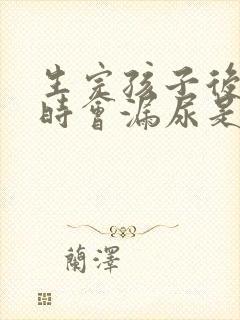 生完孩子後
時會漏尿是
蘭澤